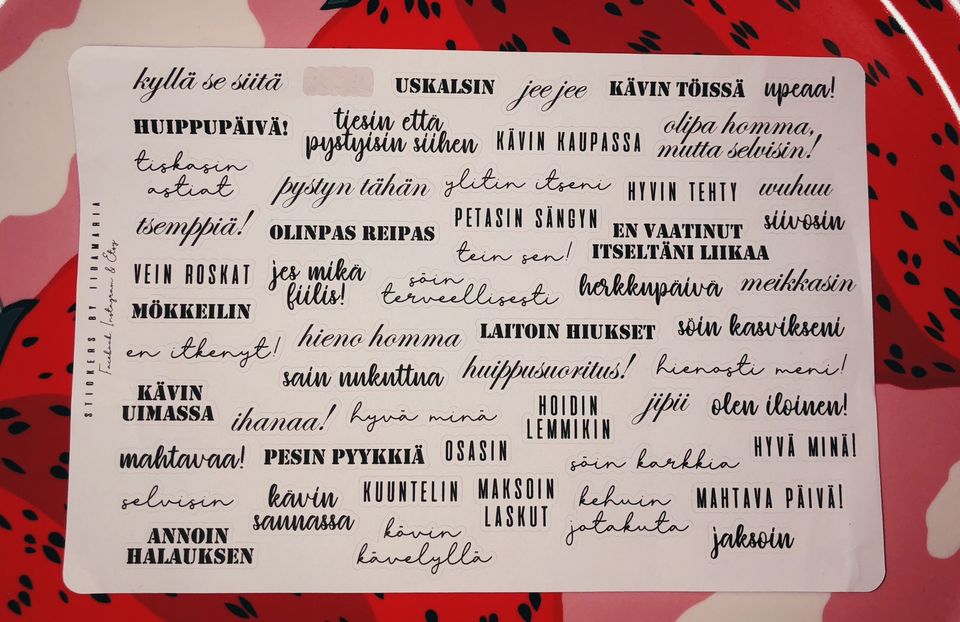 kyllä se siitä
USKALSIN
jee jee
KÄVIN TÖISSÄ
upeaa!
HUIPPUPÄIVÄ!
tiesin että
pystyisin siihen
KÄVIN KAUPASSA
olipa homma,
mutta selvisin!
tiskasin
astiat
pystyn tähän
ylitin itseni
HYVIN TEHTY
wuhuu
tsemppiä!
OLINPAS REIPAS
PETASIN SÄNGYN
EN VAATINUT
ITSELTÄNI LIIKAA
siivosin
tein sen!
VEIN ROSKAT
jes mikä
fiilis!
söin
terveellisesti
herkkupäivä
meikkasin
MÖKKEILIN
en itkenyt!
hieno homma
LAITOIN HIUKSET
söin kasvikseni
sain nukuttua
huippusuoritus!
hienosti meni!
KÄVIN
UIMASSA
ihanaa!
hyvä minä
HOIDIN
LEMMIKIN
jipii
olen iloinen!
mahtavaa!
PESIN PYYKKIÄ
OSASIN
söin karkkia
HYVÄ MINÄ!
selvisin
kävin
saunassa
KUUNTELIN
MAKSOIN
LASKUT
kehuin
jotakuta
MAHTAVA PÄIVÄ!
ANNOIN
HALAUKSEN
kävin
kävelyllä
jaksoin
STICKERS BY IIDAMARIA
Facebook, Instagram & Etsy